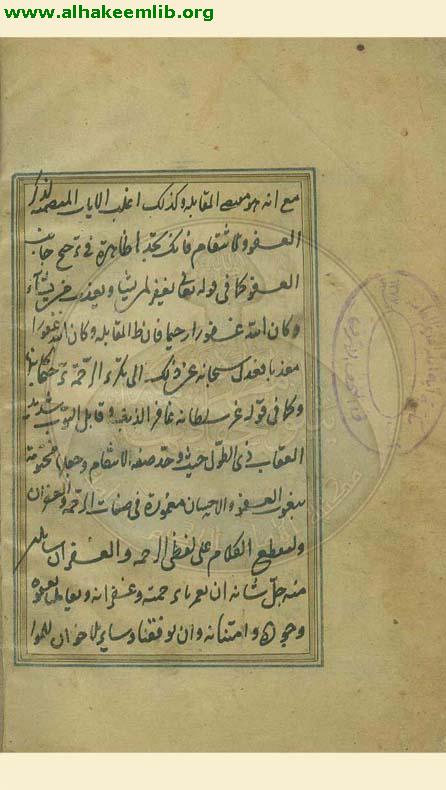 www.alhakeemlib.org
مع انه هو مقتضى المقابلة وكذلك اغلب الايات المتضمنة لذكر
العفو والانتقام فانك تجدها ظاهرة في ترجح جانب
العفو كما في قوله تعالى يغفر لمن يشاء ويعذب من يشاء
وكان الله غفورا رحيما فان ظ المقابلة وكان الله غفورا
معذبا فعدل سبحانه عن ذلك الى تكرار الرحمة ترجيحا
وكما في قوله عز سلطانه غافر الذنب وقابل التوب شديد
العقاب ذي الطول حيث وحد صفة الانتقام وجعلها
بنعوت العفو والاحسان مغمورة في صفات الرحمة والغفران
ولنقطع الكلام على لفظي الرحمة والغفران سائلين
منه جل شانه ان يغمرنا برحمته وغفرانه ويعاملنا بعفوه
وجوده وامتنانه وان يوفقنا وسائر الاخوان